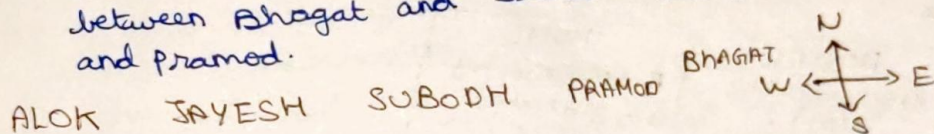 between Bhagat and
and Pramod.
N
ALOK JAYESH SUBODH PRAMOD BHAGAT W E
S